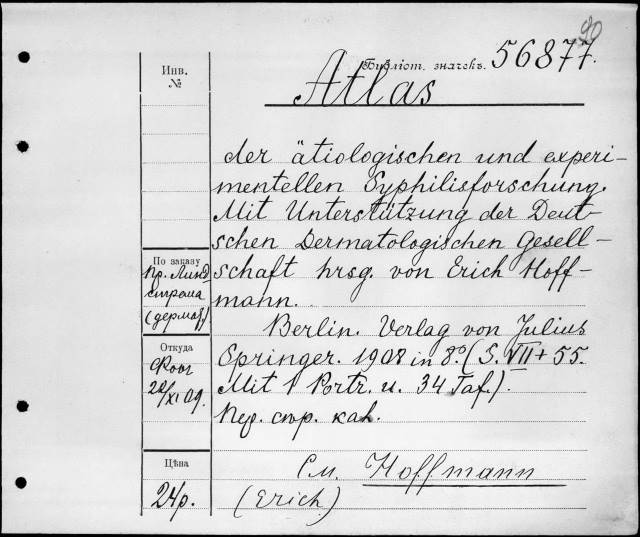 90
Библіот. значекъ. 56877.
Инв.
№
Atlas
der ätiologischen und experi-
mentellen Syphilisforschung.
Mit Unterstützung der Deut-
schen Dermatologischen Gesell-
schaft hrsg. von Erich Hoff-
mann.
Berlin. Verlag von Julius
Springer. 1908 in 8º. (S. VII + 55.
Mit 1 Portr. u. 34 Taf.).
Пер. стр. кал.
См. Hoffmann
(Erich)
По заказу
Пр. Линд
строма
(дермат)
Откуда
20/XI 09.
Цѣна
24р.